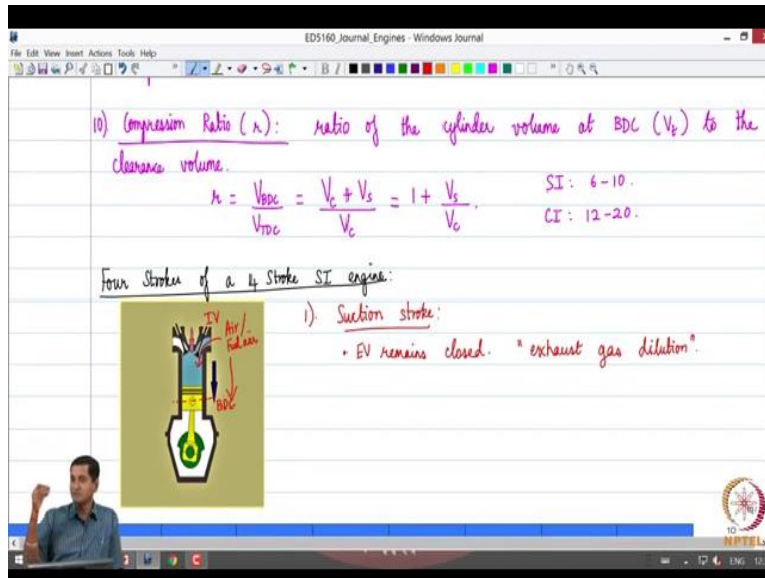 ED5160_Journal_Engines - Windows Journal
File Edit View Insert Actions Tools Help
B I
10) Compression Ratio (r): ratio of the cylinder volume at BDC (Vt) to the
clearance volume.
r = VBDC / VTDC = (Vc + Vs) / Vc = 1 + Vs / Vc.
SI: 6-10.
CI: 12-20.
Four Strokes of a 4 Stroke SI engine:
IV
Air/
BDC
1). Suction stroke:
• EV remains closed. "exhaust gas dilution".
10
NPTEL
ENG